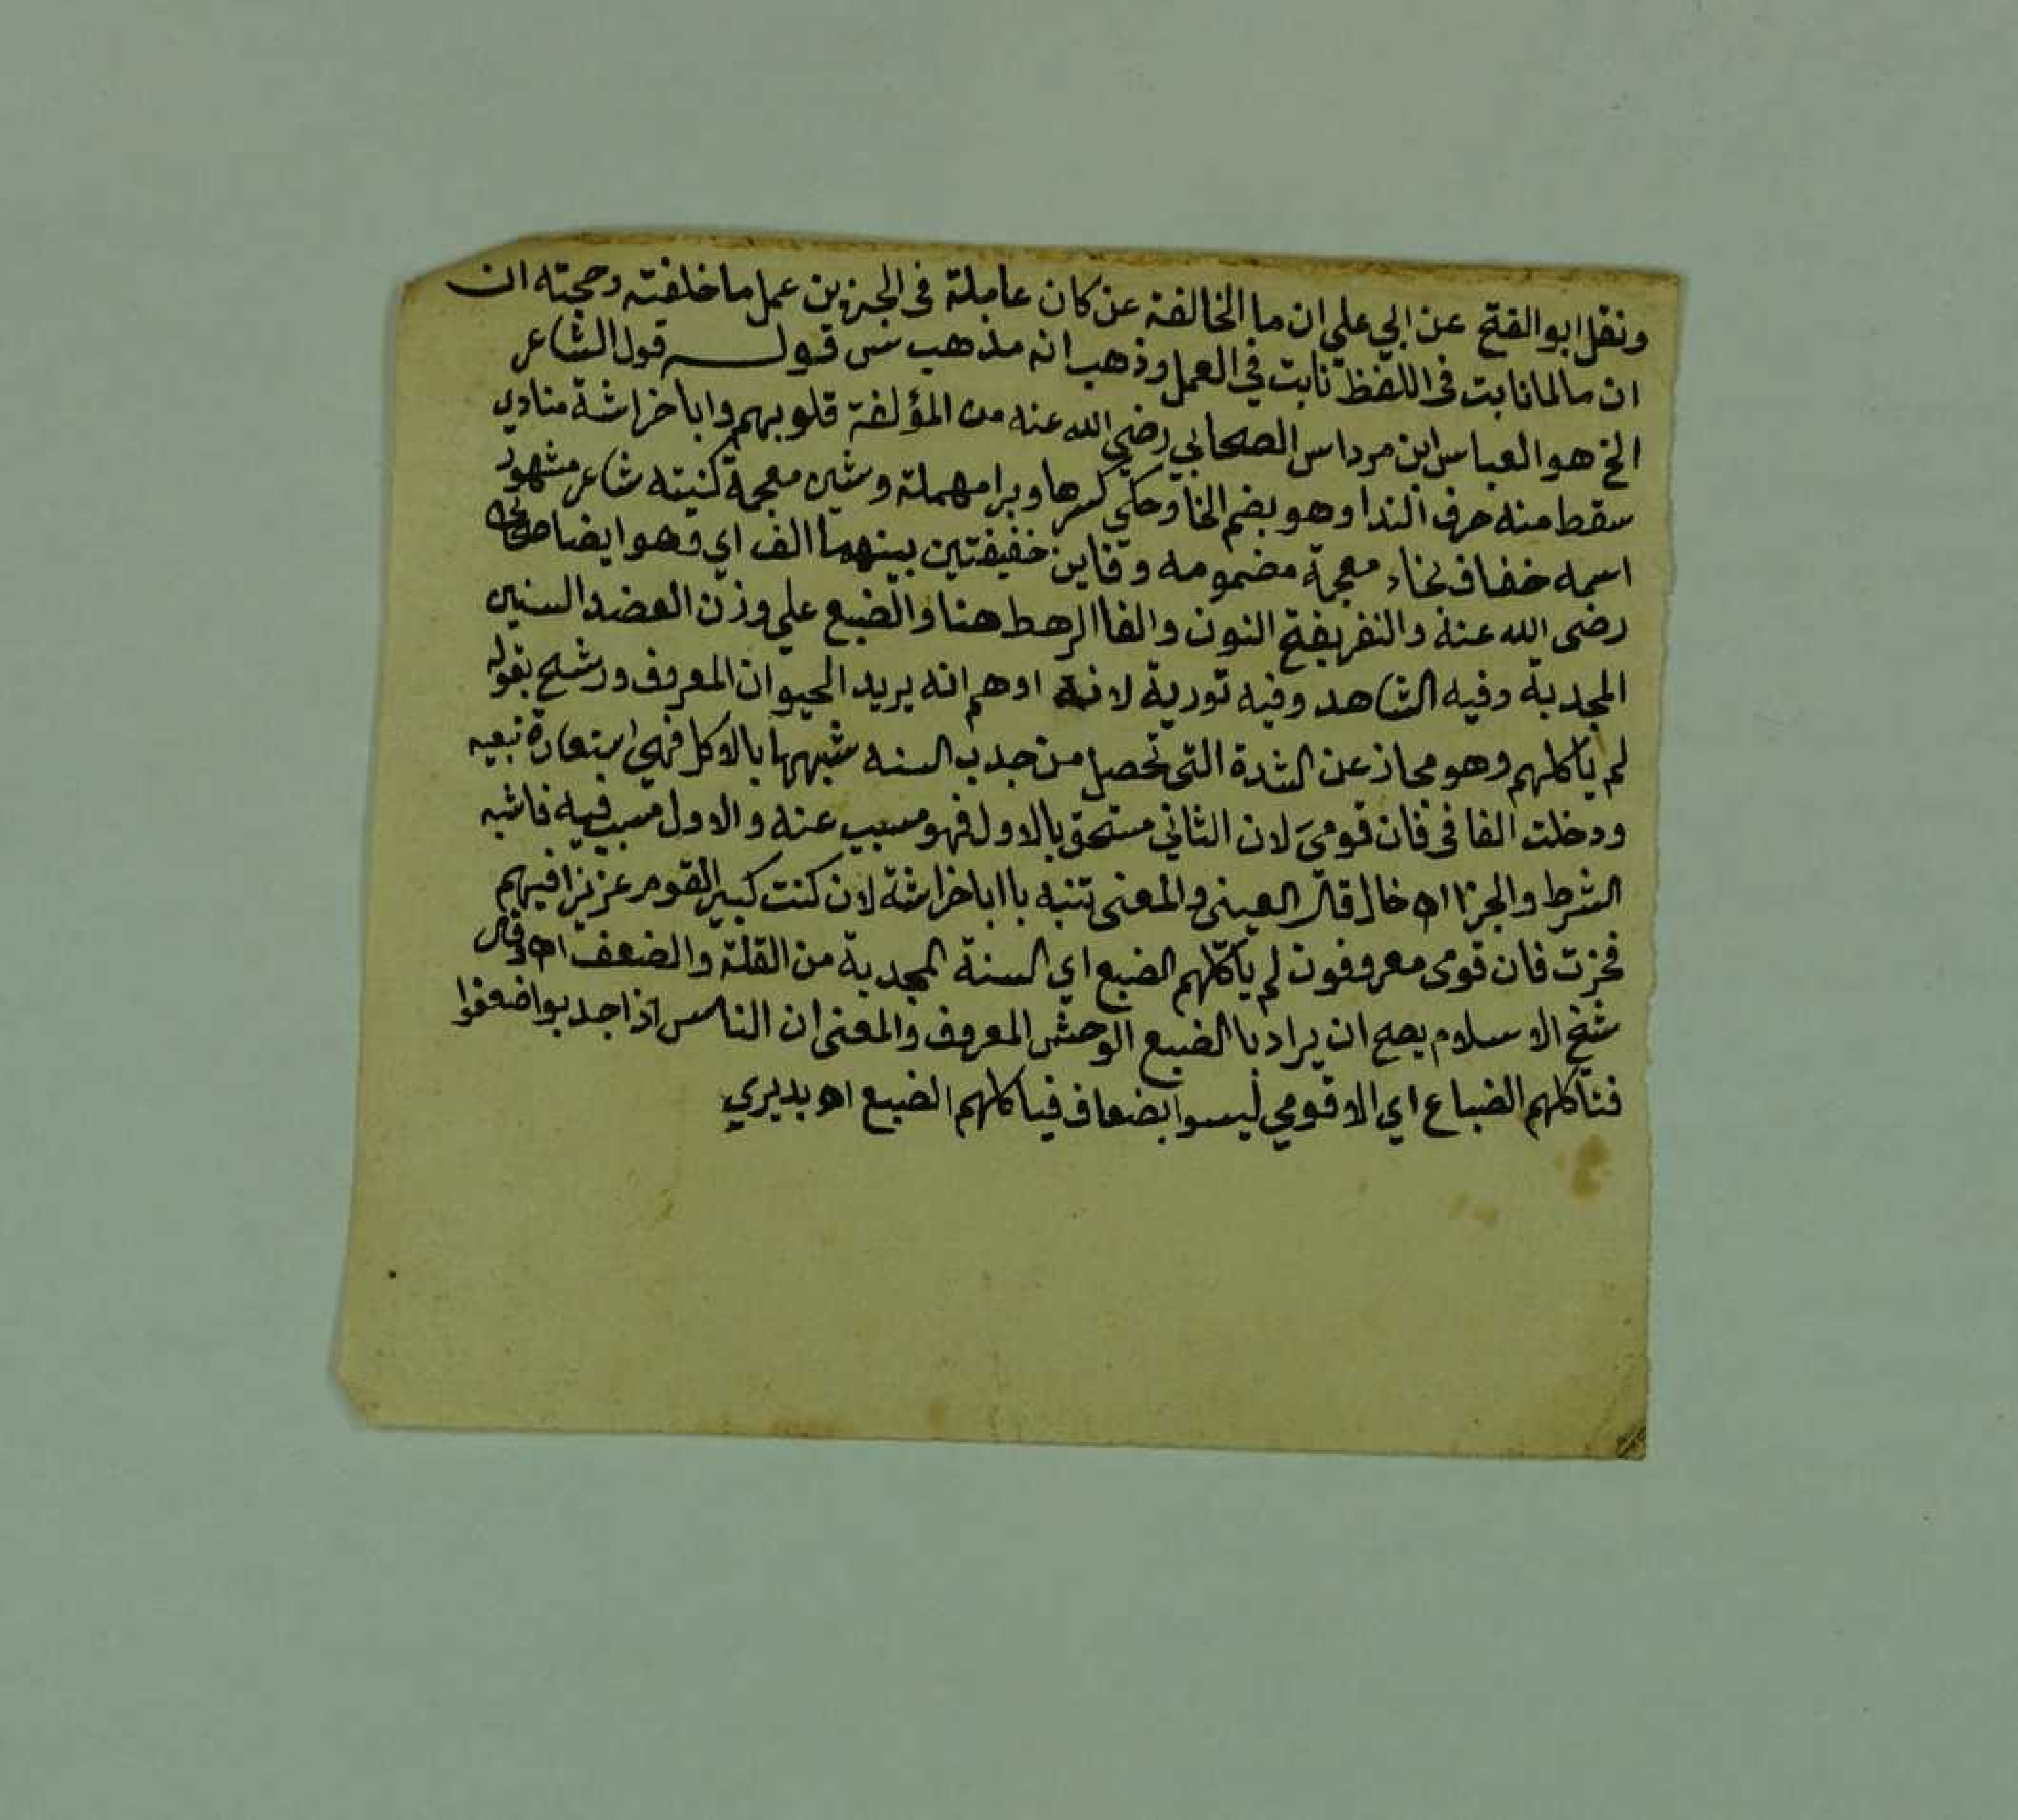 ونقل ابو الفتح عن ابي علي ان ما الخالفة عن كان عاملة في الجزين عمل ما خلفته وحجته ان
ان ما لما نابت في اللفظ نابت في العمل وذهب انه مذهب س قوله قول الشاعر
الخ هو العباس ابن مرداس الصحابي رضي الله عنه من المؤلفة قلوبهم وابا خراشة منادي
سقط منه حرف الندا وهو بضم الخا وحكي كسرها وبرا مهملة وشين معجمة كنيته شاعر مشهور
اسمه خفاف بخاء معجمة مضمومه وفاين خفيفتين بينهما الف اي وهو ايضا صحابي
رضي الله عنه والنفر بفتح النون والفا الرهط هنا والضبع علي وزن العضد السنين
المجدبة وفيه الشاهد وفيه تورية لانه اوهم انه يريد الحيوان المعروف ورشح بقوله
لم ياكلهم وهو مجاز عن الشدة التي تحصل من جدب السنه شبهها بالاكل فهي استعارة تبعيه
ودخلت الفا في فان قومي لان الثاني مستحق بالاول فهو مسبب عنه والاول مسبب فيه فاشبه
الشرط والجزا اه خال قال العيني والمعنى تنبه يا ابا خراشة لان كنت كبير القوم عزيزا فيهم
فخرت فان قومي معروفون لم ياكلهم الضبع اي السنة المجدبة من القلة والضعف اه وقال
شيخ الاسلام يصح ان يراد با الضبع الوحش المعروف والمعنى ان الناس اذا جدبوا ضعفوا
فتاكلهم الضباع اي الا قومي ليسوا بضعاف فياكلهم الضبع اه بديري